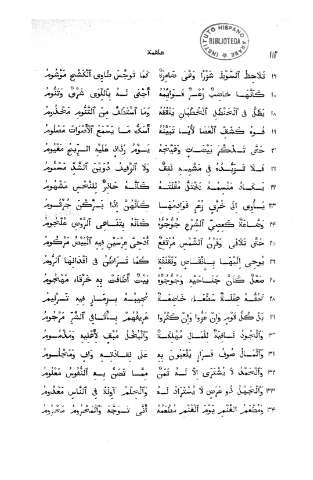 علقمة
١١٢
INSTITUTO HISPANO ARABE
BIBLIOTECA
١٦ تلاحظ السوط شزرا وهي ضامزة كما توجس طاوي الكشح موشوم
١٧ كأنها خاضب زعر قوائمه أجنى له باللوى شري وتنوم
١٨ يظل في الحنظل الخطبان ينقفه وما استطف من التنوم مخذوم
١٩ فوه كشق العصا لأيا تبينه أسك ما يسمع الأصوات مصلوم
٢٠ حتى تذكر بيضات وهيجه يوم رذاذ عليه الريح مغيوم
٢١ فلا تزيده في مشيه نفق ولا الزفيف دوين الشد مسؤوم
٢٢ يكاد منسمه يختل مقلته كأنه حاذر للنخس مشهوم
٢٣ يأوي إلى خرق زعر قوادمها كأنهن إذا بركن جرثوم
٢٤ وضاعة كعصي الشرع جؤجؤه كأنه بتناهي الروض علجوم
٢٥ حتى تلافى وقرن الشمس مرتفع أدحي عرسين فيه البيض مركوم
٢٦ يوحي إليها بإنقاض ونقنقة كما تراطن في أفدانها الروم
٢٧ صعل كأن جناحيه وجؤجؤه بيت أطافت به خرقاء مهجوم
٢٨ تحفه هقلة سطعاء خاضعة تجيبه بزمار فيه ترنيم
٢٩ بل كل قوم وإن عزوا وإن كثروا عريفهم بأثافي الشر مرجوم
٣٠ والجود نافية للمال مهلكة والبخل مبق لأهليه ومذموم
٣١ والمال صوف قرار يلعبون به على نقادته واف ومجلوم
٣٢ والحمد لا يشترى إلا له ثمن مما تضن به النفوس معلوم
٣٣ والجهل ذو عرض لا يستراد له والحلم آونة في الناس معدوم
٣٤ ومطعم الغنم يوم الغنم مطعمه أنى توجه والمحروم محروم